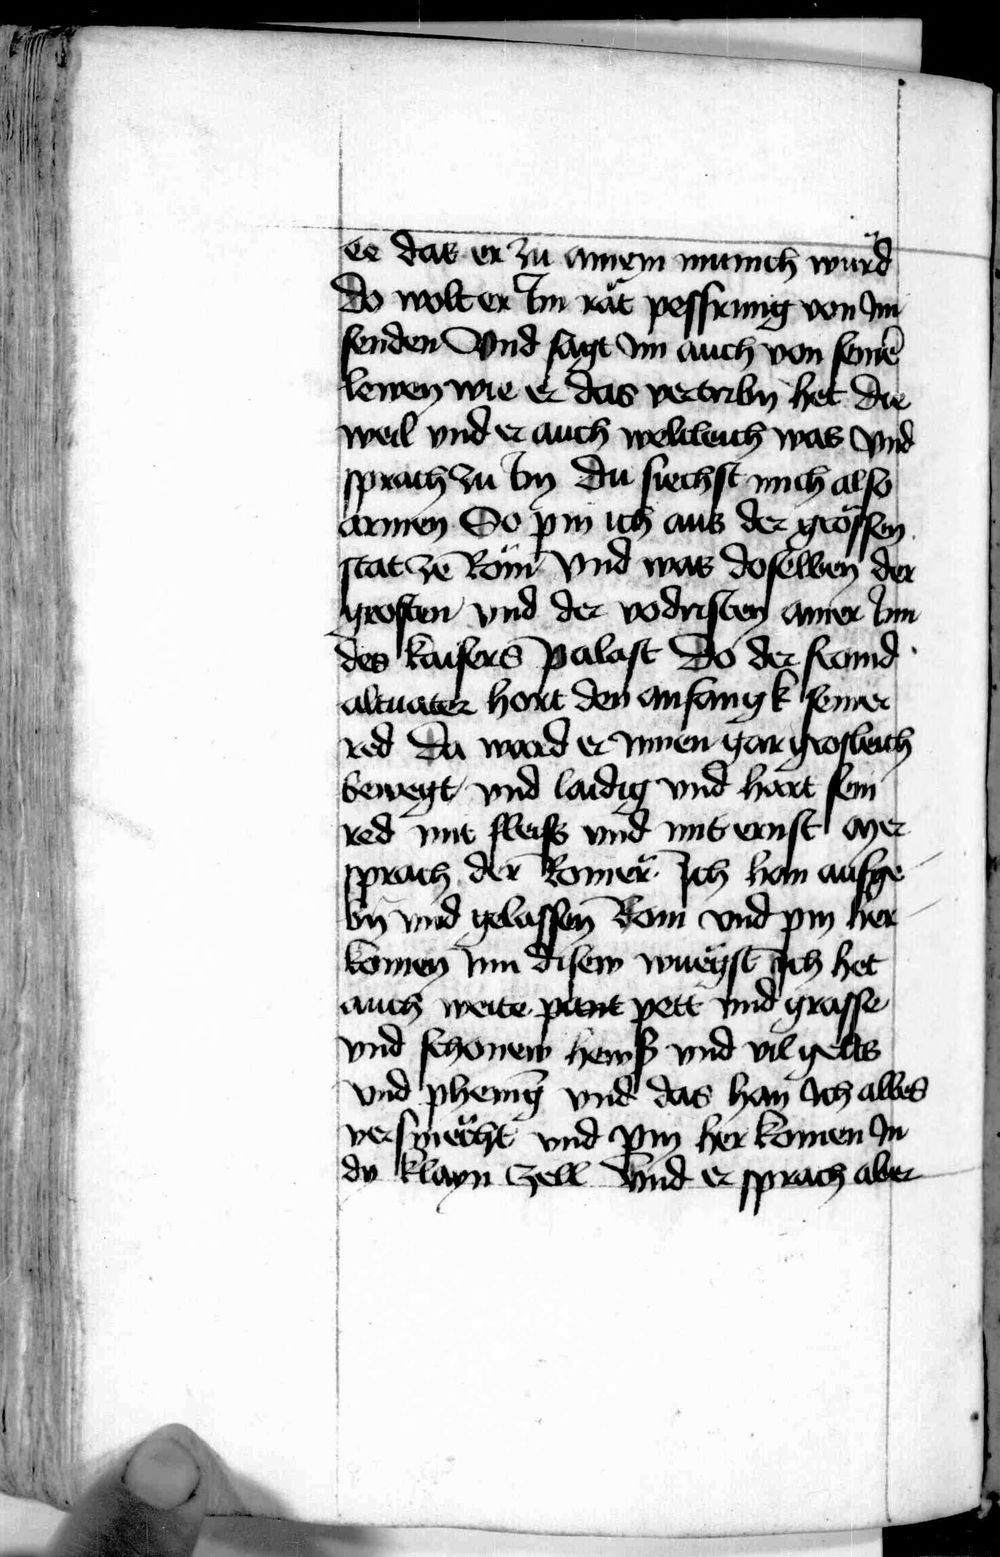 ee das er zu ainem munich wurd
Do wolt er Im rat pessrung von Im
senden Vnd sagt Im auch von seinē
leweņ wie er das vertribn het die
weil vnd er auch weltleich was Vnd
sprach zu Im Du siechst mich also
armen So pin ich aus der grössen
stat ze Rom Vnd was doselben der
grosten vnd der vodristen ainer Inn
des kaisers palast Do der fromd
altuater hort den anfangk seiner
red Da ward er Innen gar grosleich
bewegt vnd laidig vnd hort sein
red mit fleiss vnd mit ernst Mer
sprach der Romer Ich han aufge
bn vnd gelassen Rom vnd pin her
komen Inn disew wuegst Ich het
auch weite pant pett vnd grasse
vnd schonew hewß vnd vil gelts
vnd phening vnd das han Ich alles
versmecht vnd pin her komen In
dy klayn zell Vnd er sprach aber